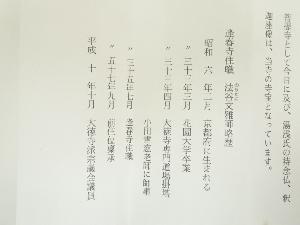 菩提寺として今日に及び、湯浅氏の持念仏、釈
迦座像は、当寺の寺宝となっています。
逢春寺住職 法谷文雅師略歴
昭和 六 年二月 京都府に生まれる
〃 三十二年三月 花園大学卒業
〃 三十二年四月 大徳寺専門道場掛塔
小田雪窓老師に師事
〃 三十五年七月 逢春寺住職
〃 五十七年九月 前住位稟承
平成 十 年十月 大徳寺派宗議会議員